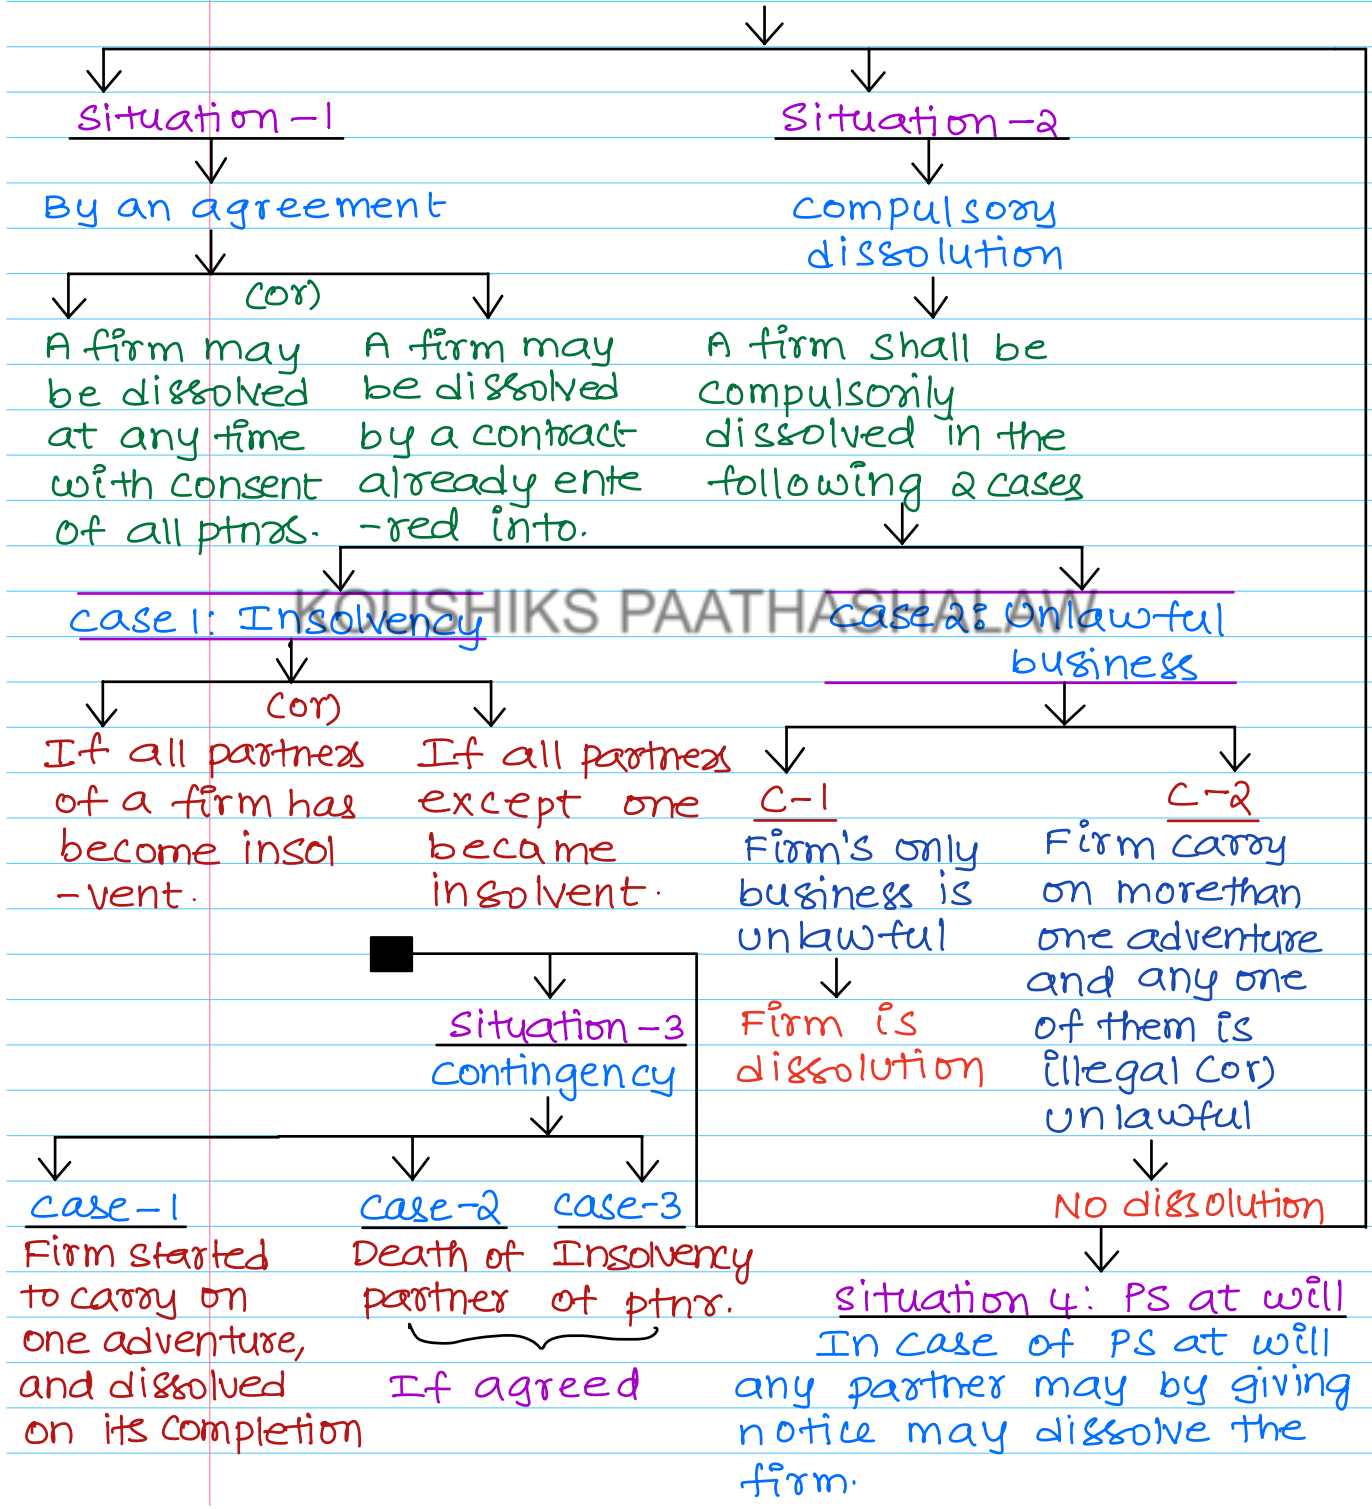 Situation-1
By an agreement
(or)
A firm may
be dissolved
at any time
with consent
of all ptnrs.
A firm may
be dissolved
by a contract
already ente
-red into.
Situation-2
Compulsory
dissolution
A firm shall be
compulsorily
dissolved in the
following 2 cases
KOUSHIKS PAATHASHALAW
Case 1: Insolvency
(or)
If all partners
of a firm has
become insol
-vent.
If all partners
except one
became
insolvent.
Case 2: Unlawful
business
C-1
Firm's only
business is
unlawful
Firm is
dissolution
C-2
Firm carry
on morethan
one adventure
and any one
of them is
illegal (or)
unlawful
No dissolution
Situation-3
Contingency
Case-1
Firm started
to carry on
one adventure,
and dissolved
on its completion
Case-2
Death of
partner
Case-3
Insolvency
of ptnr.
If agreed
Situation 4: PS at will
In case of PS at will
any partner may by giving
notice may dissolve the
firm.